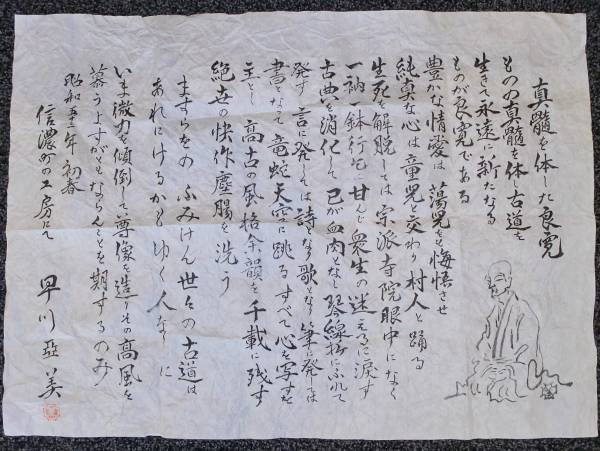 真髄を体した良寛
ものの真髄を体し古道を
生きて永遠に新たなる
ものが良寛である
豊かな情愛は蕩児を悔悟させ
純真な心は童児と交わり村人と踊る
生死を解脱しては宗派寺院眼中になく
一衲一鉢行乞に甘んじ衆生の迷えるに涙す
古典を消化して己が血肉となし琴線物にふれて
発す 言に発しては詩なり歌なり筆に発しては
書となって竜蛇天空に跳るすべて心を写すを
主とし高古の風格余韻を千載に残す
絶世の快作塵腸を洗う
ますらをの ふみけん世々の古道は
あれにけるかもゆく人なしに
いま微力を傾倒して尊像を造りその高風を
慕うよすがともならんことを期するのみ
昭和五十一年 初春
信濃町の工房にて
早川亞美